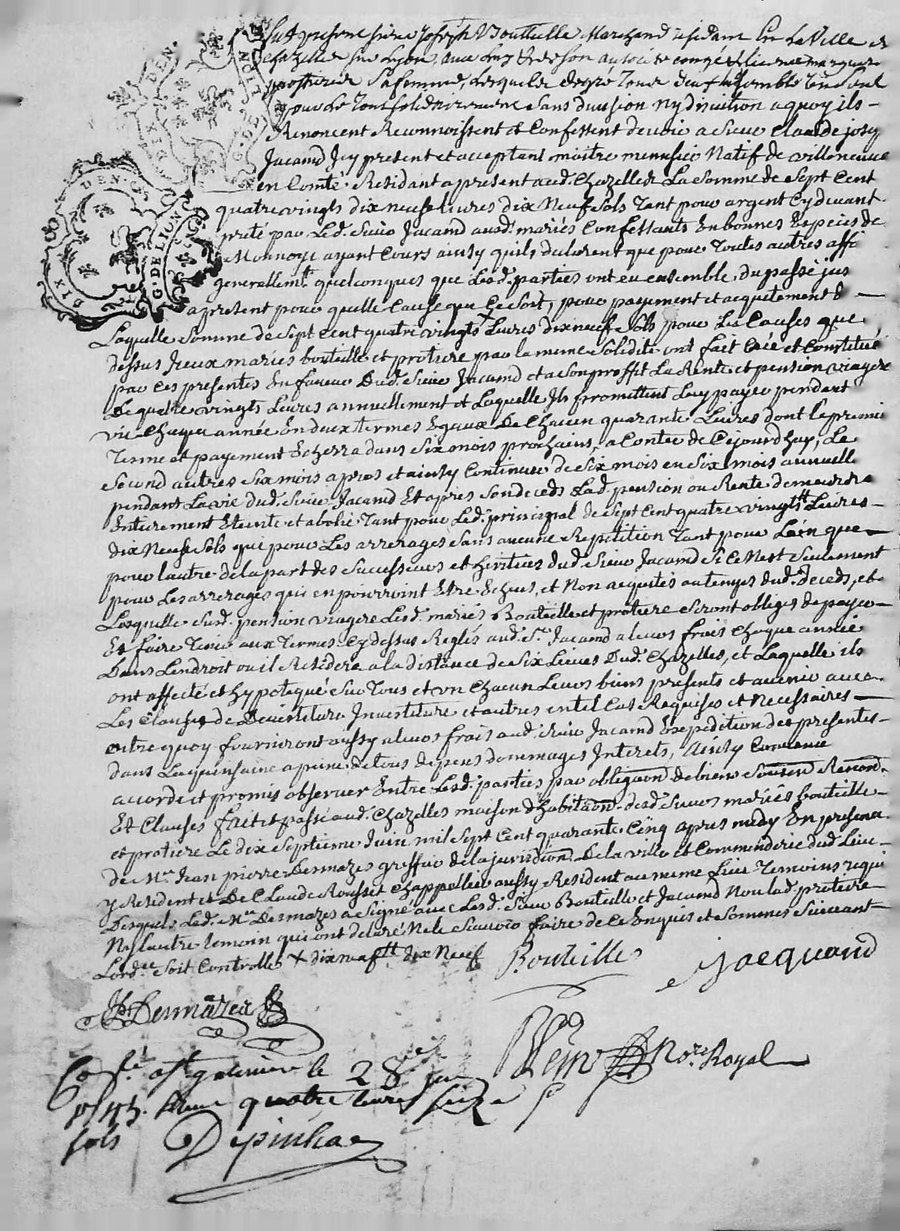 Fut present sieur Joseph Bouteille Marchand residant en la Ville de
Chazelle sur Lyon
sa femme, lesquels de gré tous deux ensemble un seul
pour le tout solidairement sans division ny discution a quoy ils
Renoncent Reconnoissent et Confessent devoir a Sieur Claude josep
Jacand Icy present et acceptant maitre menusier Natif de villeneuve
en Comté Residant apresent aud. Chazelles La somme de sept Cent
quatre vingts dix neuf Livres dix Neuf sols Tant pour argent Cy devant
preté par Led. sieur Jacand ausd. mariés Confessants En bonnes Especes de
Monnoye ayant Cours ainsy qu'ils declarent que pour Toutes autres affe
generallemt. quelconques que Lesd. parties ont eu ensemble du passé jus
apresent pour quelle Cause que Ce soit, pour payement et acquitement de
Laquelle Somme de sept Cent quatre vingts Livres dix neuf sols pour Les Causes que
dessus Iceux mariés bouteille et protiere par la meme solidité ont fait Créé et Constitué
par Ces presentes En faveur Dud. sieur Jacand et a son proffit La Rente et pension viagere
De quatre vingts Livres annuellement et Laquelle Ils promettent Luy payer pendant
vie Chaque année En deux termes Egaux De Chacun quarante Livres dont le premie
Terme et payement Echerra dans six mois prochains, a Conter de Cejourdhuy, Le
second autres six mois apres et ainsy Continuer de six mois en six mois annuelle
pendant La vie dud. sieur Jacand Et après son decéds Lad. pension ou Rente demeurera
Entierement Eteinte et abolie Tant pour Led. principal de sept Cent quatre vingts Livres
dix Neuf sols que pour Les arrerages sans aucune Repetition Tant pour L'un que
pour L'autre de la part des successeurs et heritiers dud. sieur Jacand si ce N'est seulement
pour Les arrerages qui en pourroint Etre Echus, et Non acquités au temps dud. decéds, et
Lesquelle susd. pension viagere Lesd. mariés Bouteille et protiere seront obligés de payer
Et faire Tenir aux Termes Cy dessus Reglés aud. sr. Jacand a leurs frais Chaque année
Dans L'endroit ou il Residera a la distance de six Lieues Dud. Chazelles, et Laquelle ils
ont affecté et hypotequé sur Tous et un Chacun Leurs biens presents et avenir avec
Les Clauses de Devestiture Investiture et autres en tel Cas Requises et Necessaires
outre quoy fourniront aussy a leurs frais aud. sieur Jacand Expedition des presentes
dans La quinsaine a peine de tous depens dommages Interets, Ainsy Convenu
accordé et promis observer Entre Lesd. parties par obligaon. de biens soumon. Renond.
Et Clauses fait et passé aud. Chazelles maison d'habitaon. desd. sieurs mariés bouteille
et protiere Le dix septieme Juin mil sept Cent quarante Cinq apres midy En presence
de Mr. Jean pierre Desmazes greffier de la jurisdion. De la ville et Commenderie dud. Lieu
y Resident et De Claude Rousset Chappellier aussy Resident au meme Lieu Temoins requis
Desquels Led. Mr. Desmazes a signé avec Lesd. sieurs Bouteille et Jacand Non lad. protiere
Ny L'autre temoin qui ont declaré Ne le scavoir faire de Ce Enquis et sommés suivant
Lord. soit Controllé
Bouteille
Jacquand
Desmazes
Nore. Royal
le 28 juin
quatre livres seize
sols
DEN.
DIX
G. DE LION
DIX DEN.
G. DE LION